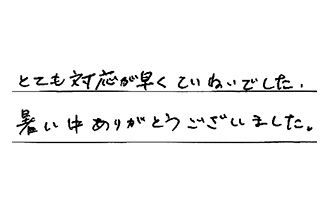 とても対応が早くていねいでした.
暑い中ありがとうございました。